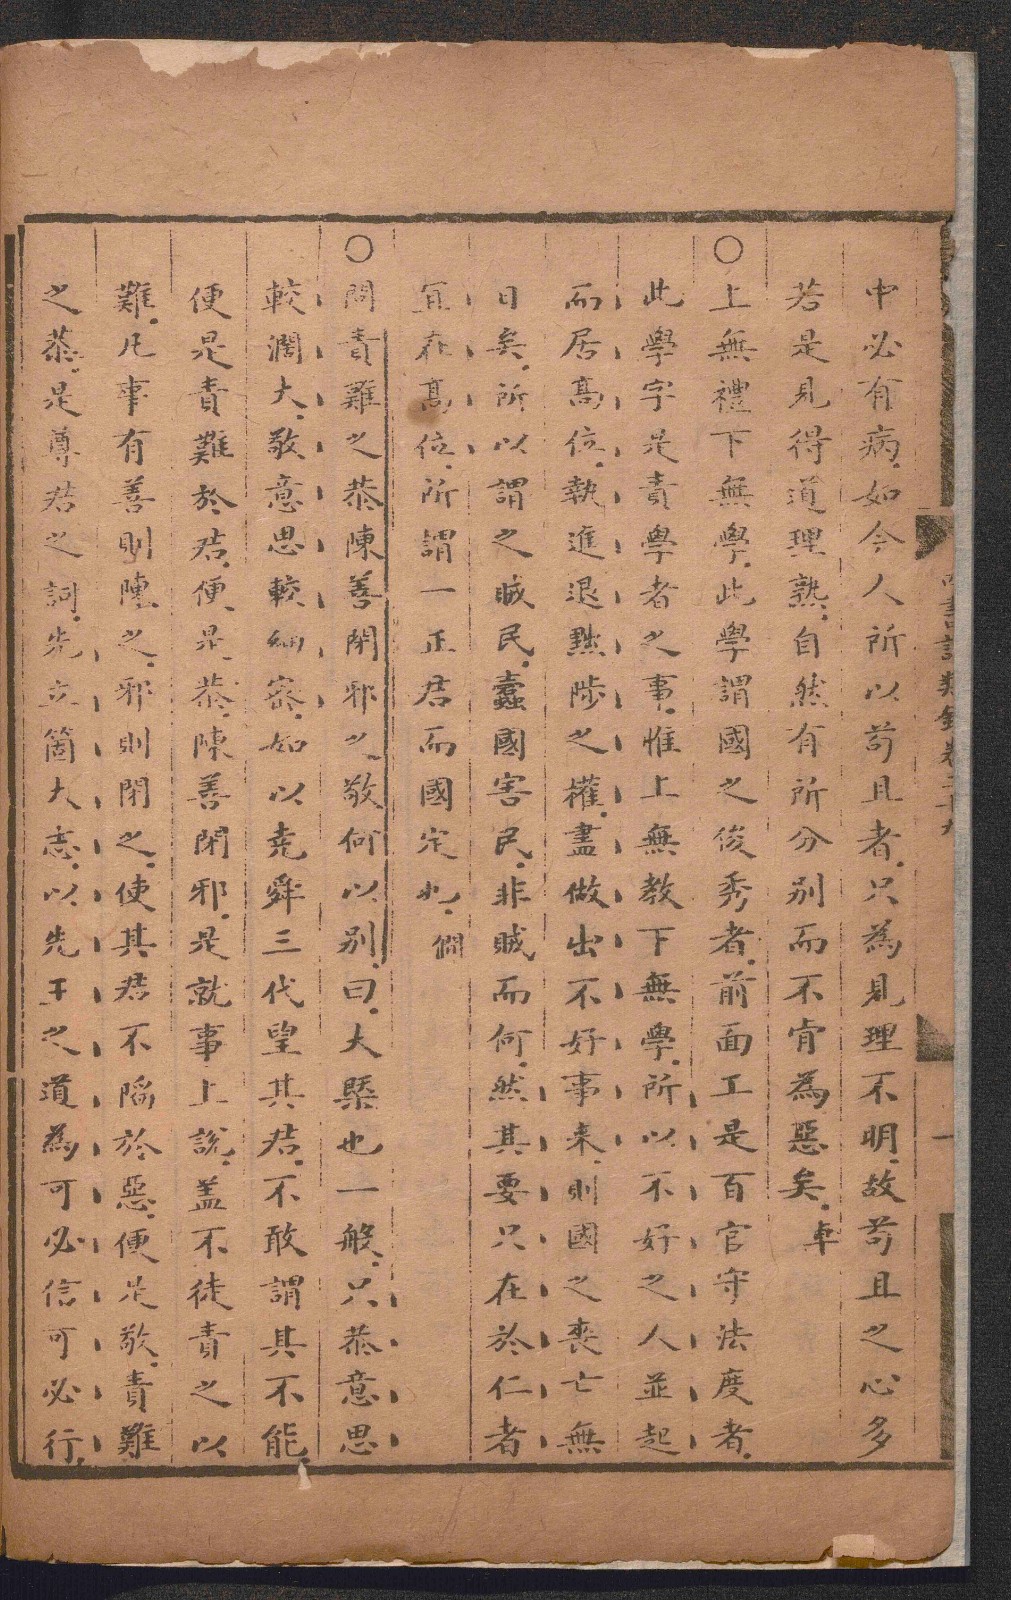 中必有病如今人所以苟且者只為見理不明故苟且之心多
若是見得道理熟自然有所分别而不肯為惡矣卓
〇上無禮下無學此學謂國之俊秀者前面工是百官守法度者
此學字是責學者之事惟上無教下無學所以不好之人並起
而居高位執進退黜陟之權盡做出不好事來則國之喪亡無
日矣所以謂之賊民蠹國害民非賊而何然其要只在於仁者
宜在高位所謂一正君而國定也僩
〇問責難之恭陳善閉邪之敬何以别曰大槩也一般只恭意思
較濶大敬意思較細宻如以堯舜三代望其君不敢謂其不能
便是責難於君便是恭陳善閉邪是就事上說盖不徒責之以
難凡事有善則陳之邪則閉之使其君不䧟於惡便是敬責難
之恭是尊君之詞先立箇大志以先王之道為可必信可必行
書語類